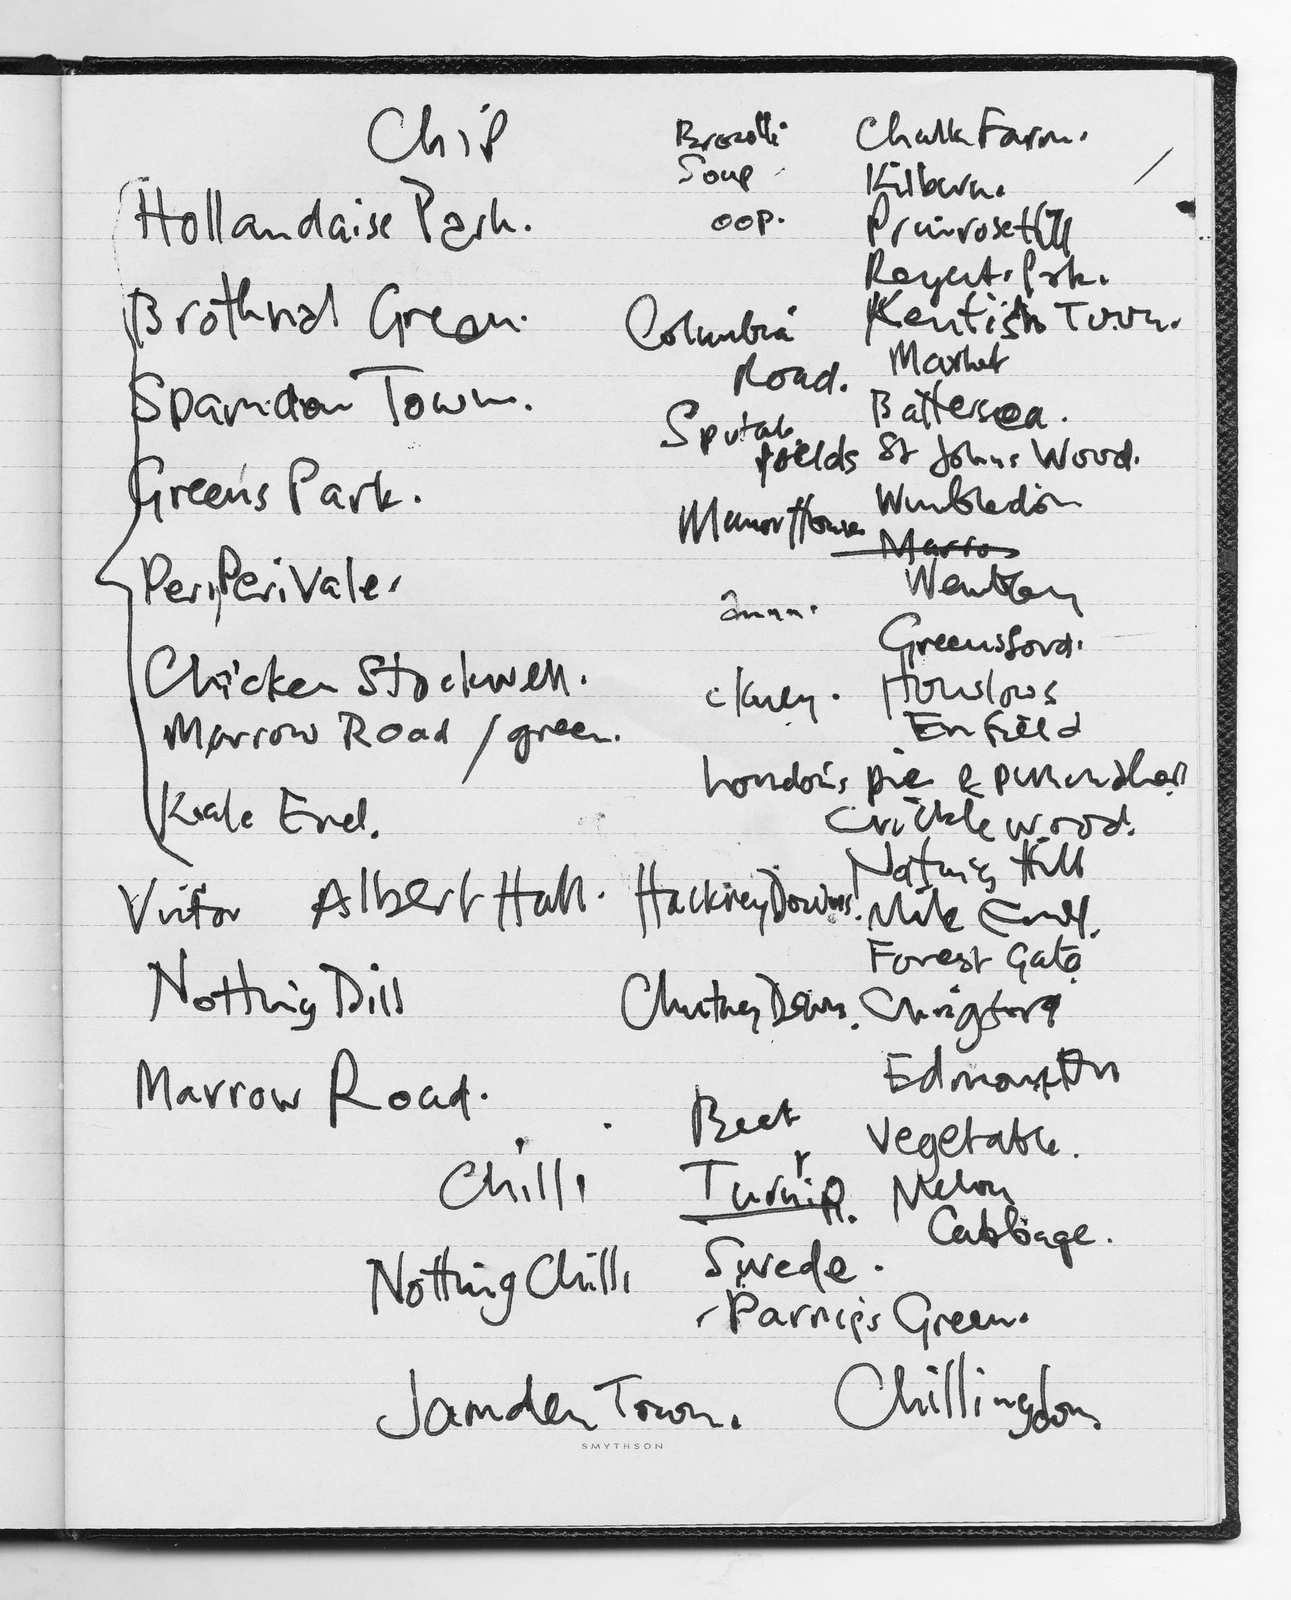 Chip
Hollandaise Park.
Brothnal Green.
Town.
Greens Park.
Peri Perivale.
Chicken Stockwell.
Marrow Road / green.
Kale End.
Albert Hall.
Notting Dill
Marrow Road.
Chilli
Notting Chilli
Jamden Town.
Soup
oop.
Columbia
Road.
fields
Manor House
ckney.
Hackney Downs.
Chutney Downs.
Beet
Turnip.
Swede.
Parnips Green.
Chalk Farm.
Kilburn.
Primrose Hill
Regents Prk.
Kentish Town.
Market
Battersea.
St Johns Wood.
Wimbledon
Marro
Wembley
Greensford.
Hounslows
Enfield
London's pie &
Cricklewood.
Notting Hill
Mile End.
Forest Gate
Chingford
Edmonton
Vegetable.
Melon
Cabbage.
Chillingdon.
SMYTHSON